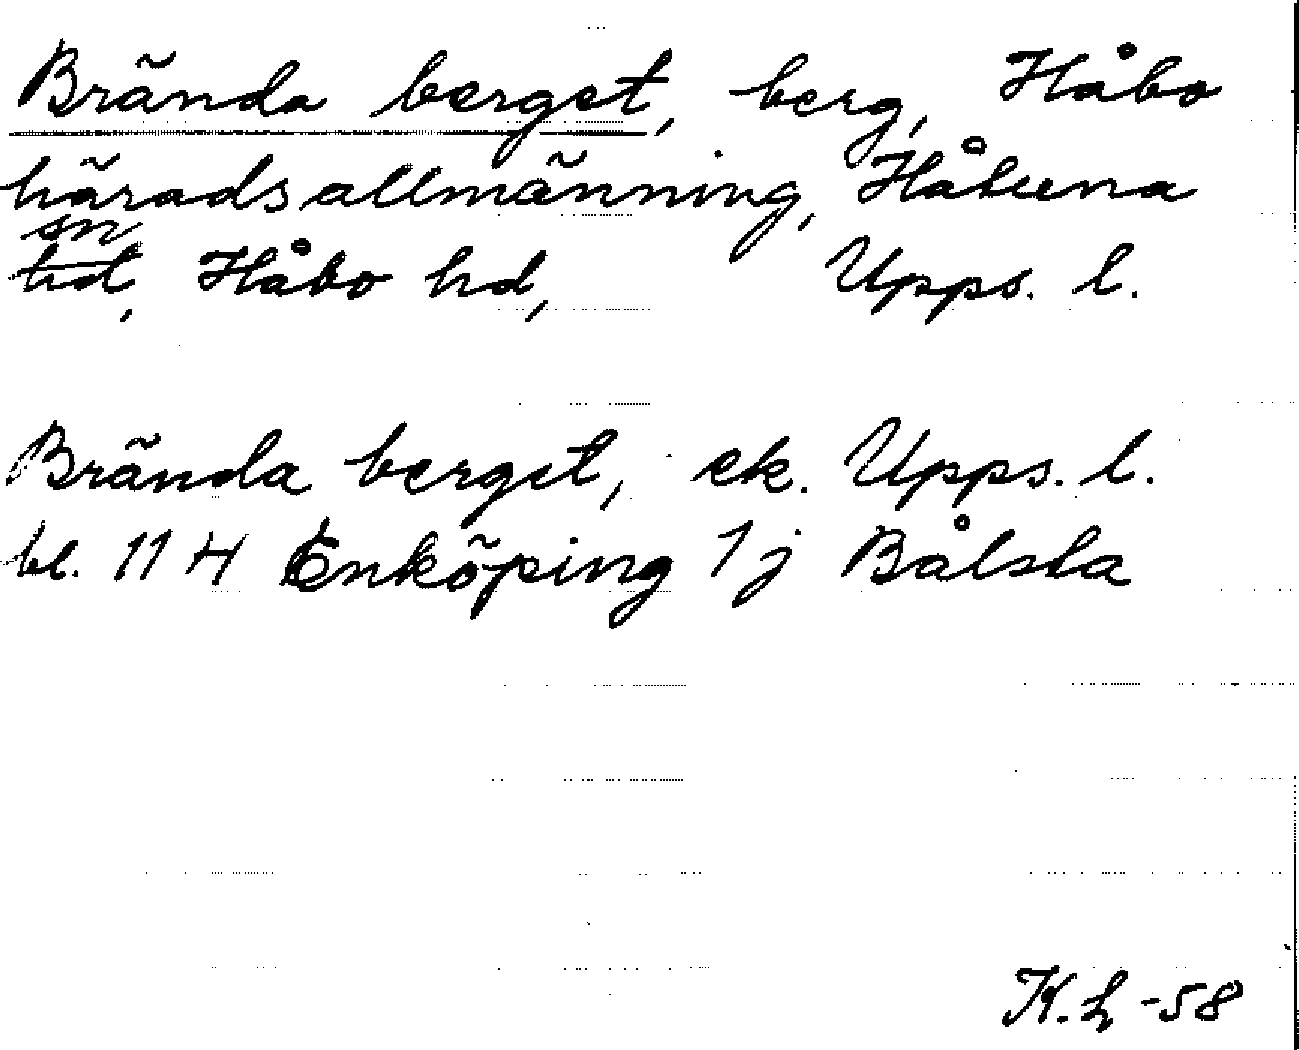 Brända berget, berg, Håbo
häradsallmänning, Håtuna
sn
hd, Håbo hd, Upps. l.
Brända berget, ek. Upps. l.
bl. 11 H Enköping 1 j Bålsta
K. L -58